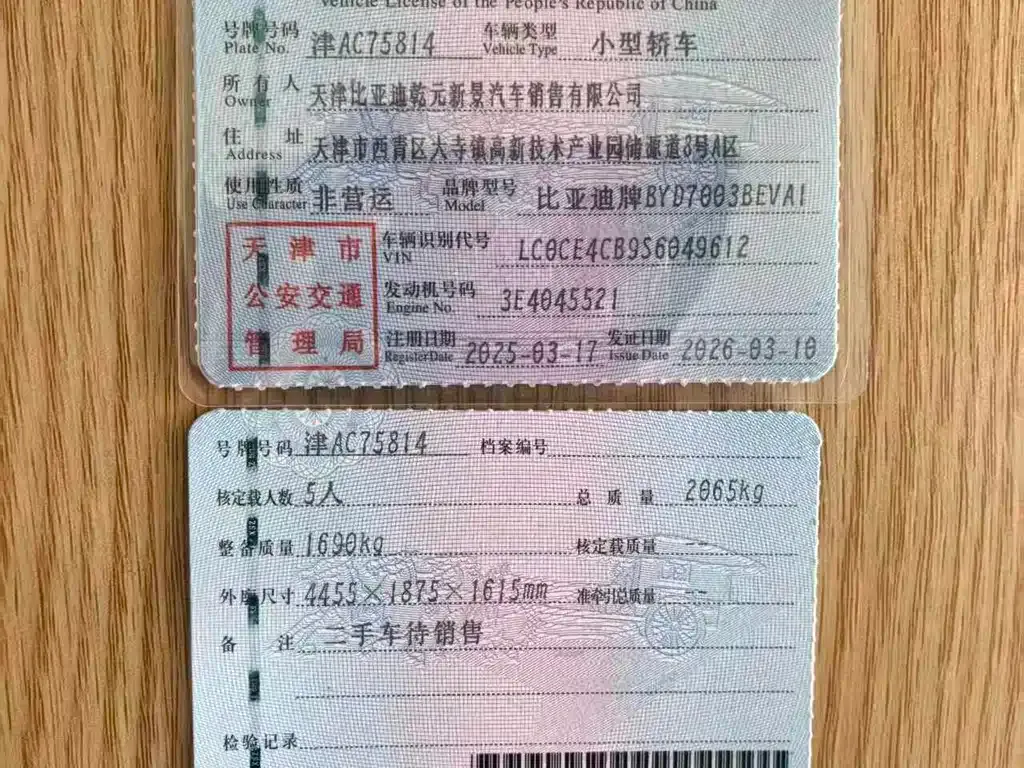 Vehicle License of the People's Republic of China
号牌号码 Plate No. 津AC75814 车辆类型 Vehicle Type 小型轿车
所有人 Owner 天津比亚迪乾元新景汽车销售有限公司
住址 Address 天津市西青区大寺镇高新技术产业园储源道3号A区
使用性质 Use Character 非营运 品牌型号 Model 比亚迪牌BYD7003BEVA1
天津市
公安交通
管理局
车辆识别代号 VIN LC0CE4CB9S6049612
发动机号码 Engine No. 3E4045521
注册日期 Register Date 2025-03-17 发证日期 Issue Date 2026-03-10
号牌号码 津AC75814 档案编号
核定载人数 5人 总质量 2065kg
整备质量 1690kg 核定载质量 --
外廓尺寸 4455×1875×1615mm 准牵引总质量 --
备注 二手车待销售
检验记录